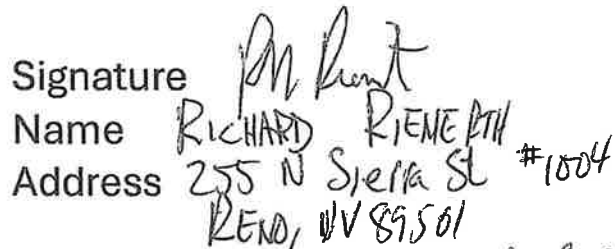 Signature
Name RICHARD RIENERTH
Address 255 N Sierra St #1004
RENO, NV 89501